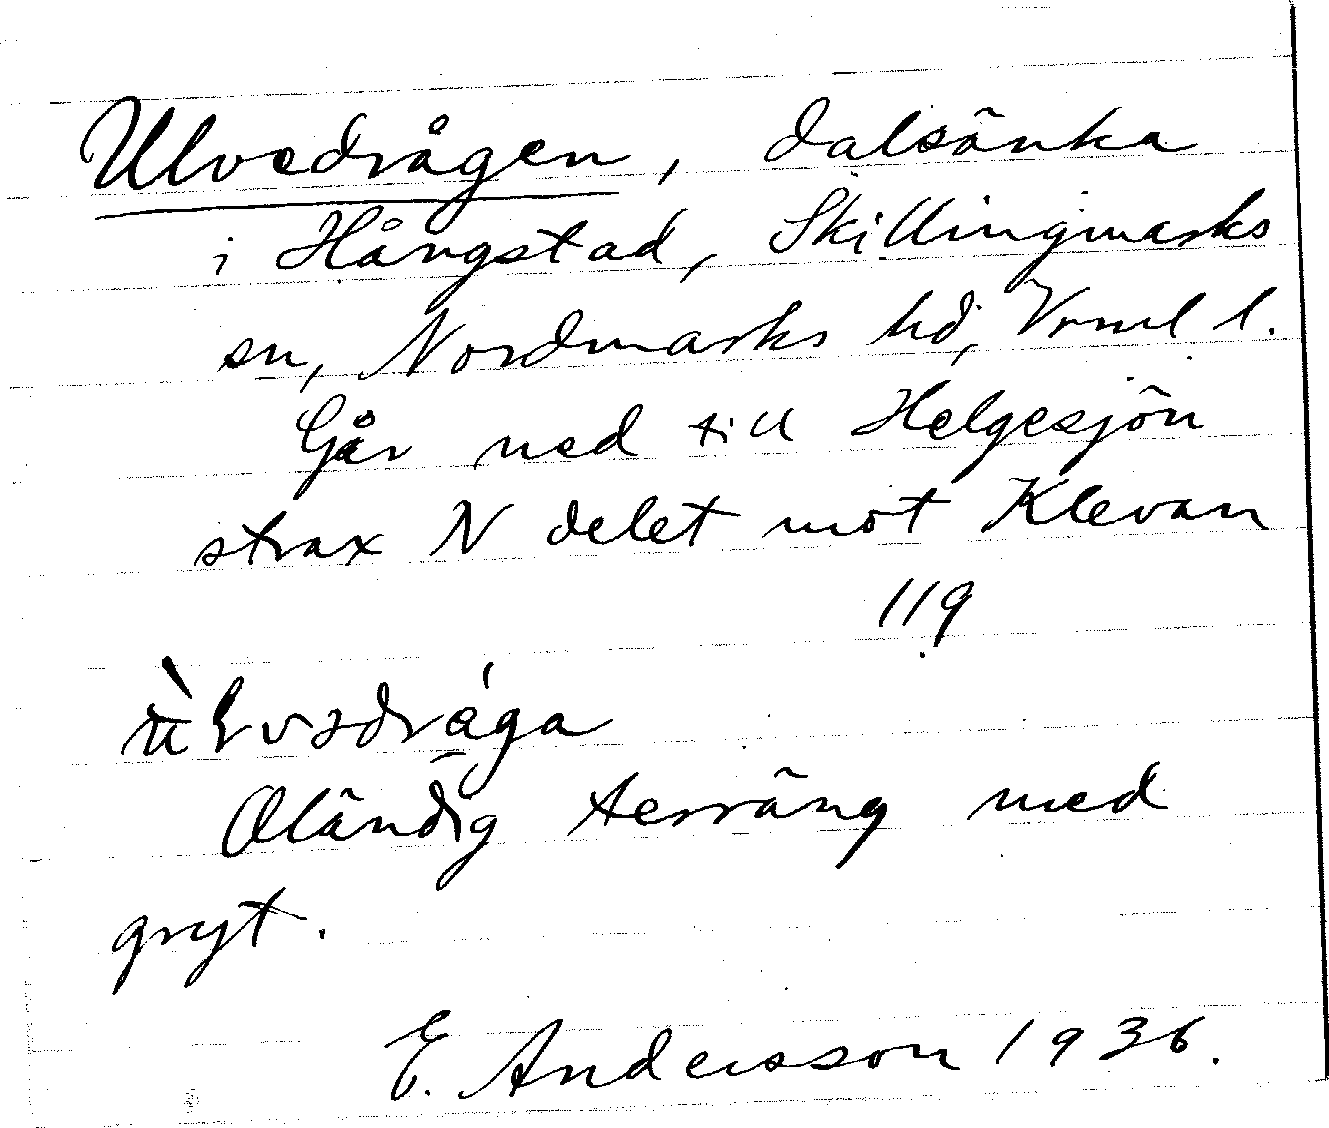 Ulvedrågen, dalsänka
i Hångstad, Skillingmarks
sn, Nordmarks hd, Vrml l.
Går ned till Helgesjön
strax N delet mot Klevan
119
Oländig terräng med
gryt.
E. Andersson 1936.